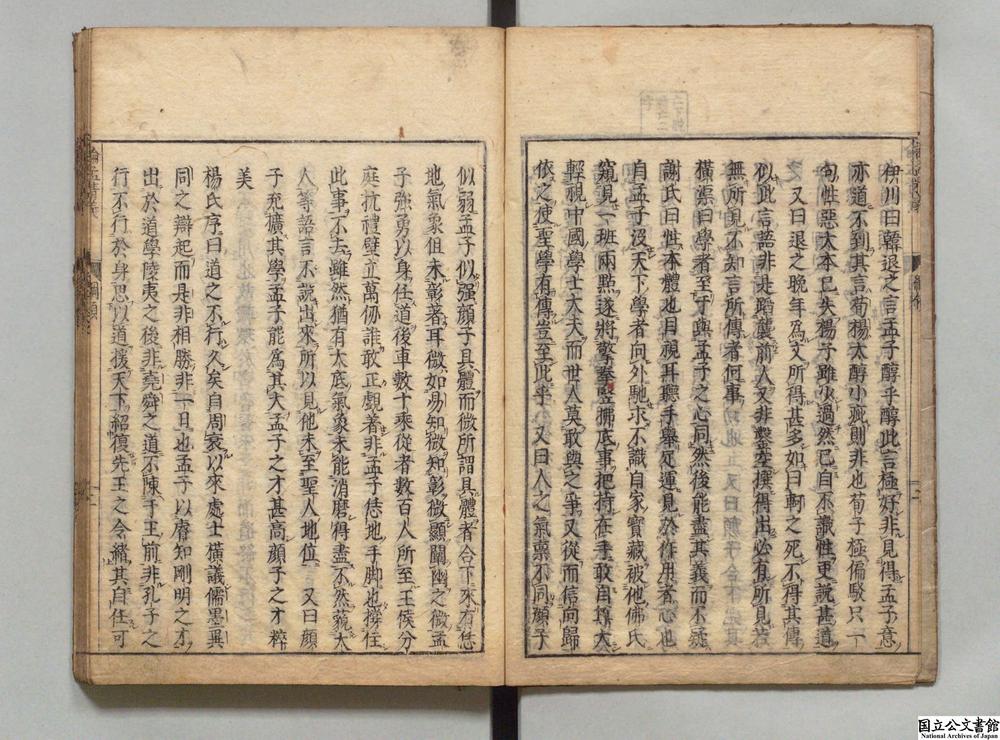 伊川曰韓退之言孟子醇乎醇此言極好非見得孟子意
亦道不到其言荀楊大醇小疵則非也荀子極偏駁只一
句性惡大本已失楊子雖少過然已自不識性更說甚道
又曰退之晚年爲文所得甚多如曰軻之死不得其傳
似此言語非是蹈襲前人又非鑿空撰得出必有所見若
無所見不知言所傳者何事
橫渠曰學者至于與孟子之心同然後能盡其義而不疑
謝氏曰性本體也目視耳聽手舉足運見於作用者心也
自孟子沒天下學者向外馳求不識自家寶藏被他佛氏
窺見一班兩點遂將擎拳竪拂底事把持在手敢自尊大
輕視中國學士大夫而世人莫敢與之爭又從而信向歸
依之使聖學有傳豈至此乎 又曰人之氣稟不同顏子
似弱孟子似强顏子具體而微所謂具體者合下來有恁
地氣象但未彰著耳微如易知微知彰微顯闡幽之微孟
子強勇以身任道後車數十乘從者數百人所至王侯分
庭抗禮壁立萬仞誰敢正覷著非孟子恁地手脚也撐住
此事不去雖然猶有大底氣象未能消磨得盡不然藐大
人等語言不說出來所以見他未至聖人地位 又曰顏
子充擴其學孟子能爲其大孟子之才甚高顏子之才粹
美
楊氏序曰道之不行久矣自周衰以來處士橫議儒墨異
同之辯起而是非相勝非一日也孟子以睿知剛明之才
出於道學陵夷之後非堯舜之道不陳于王前非孔子之
行不行於身思以道援天下紹復先王之令緒其自任可
國立公文書館
National Archives of Japan